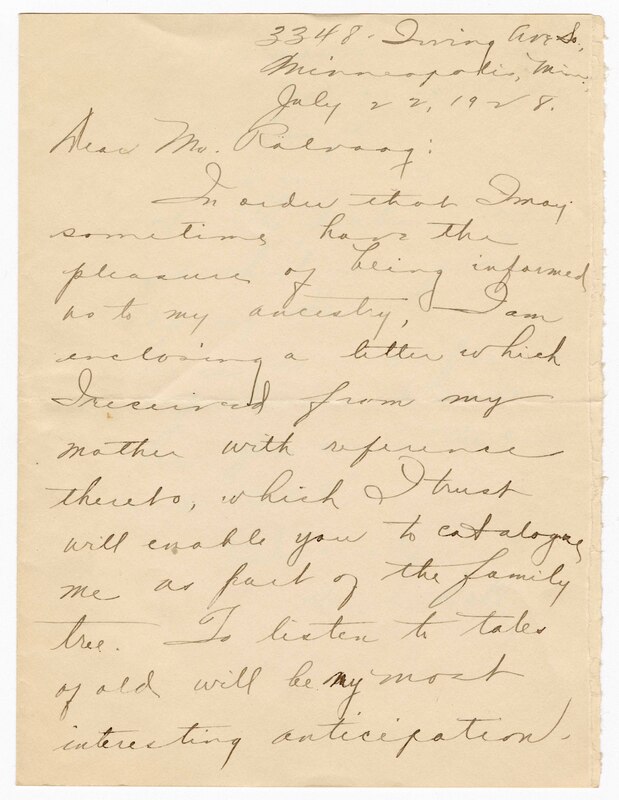 3348- Irving Ave So.,
Minneapolis, Minn.,
July 22, 1928.
Dear Mr. Rölvaag:
In order that I may
sometime have the
pleasure of being informed
as to my ancestry, I am
enclosing a letter which
I received from my
mother with reference
thereto, which I trust
will enable you to catalogue
me as part of the family
tree. To listen to tales
of old will be my most
interesting anticipation.